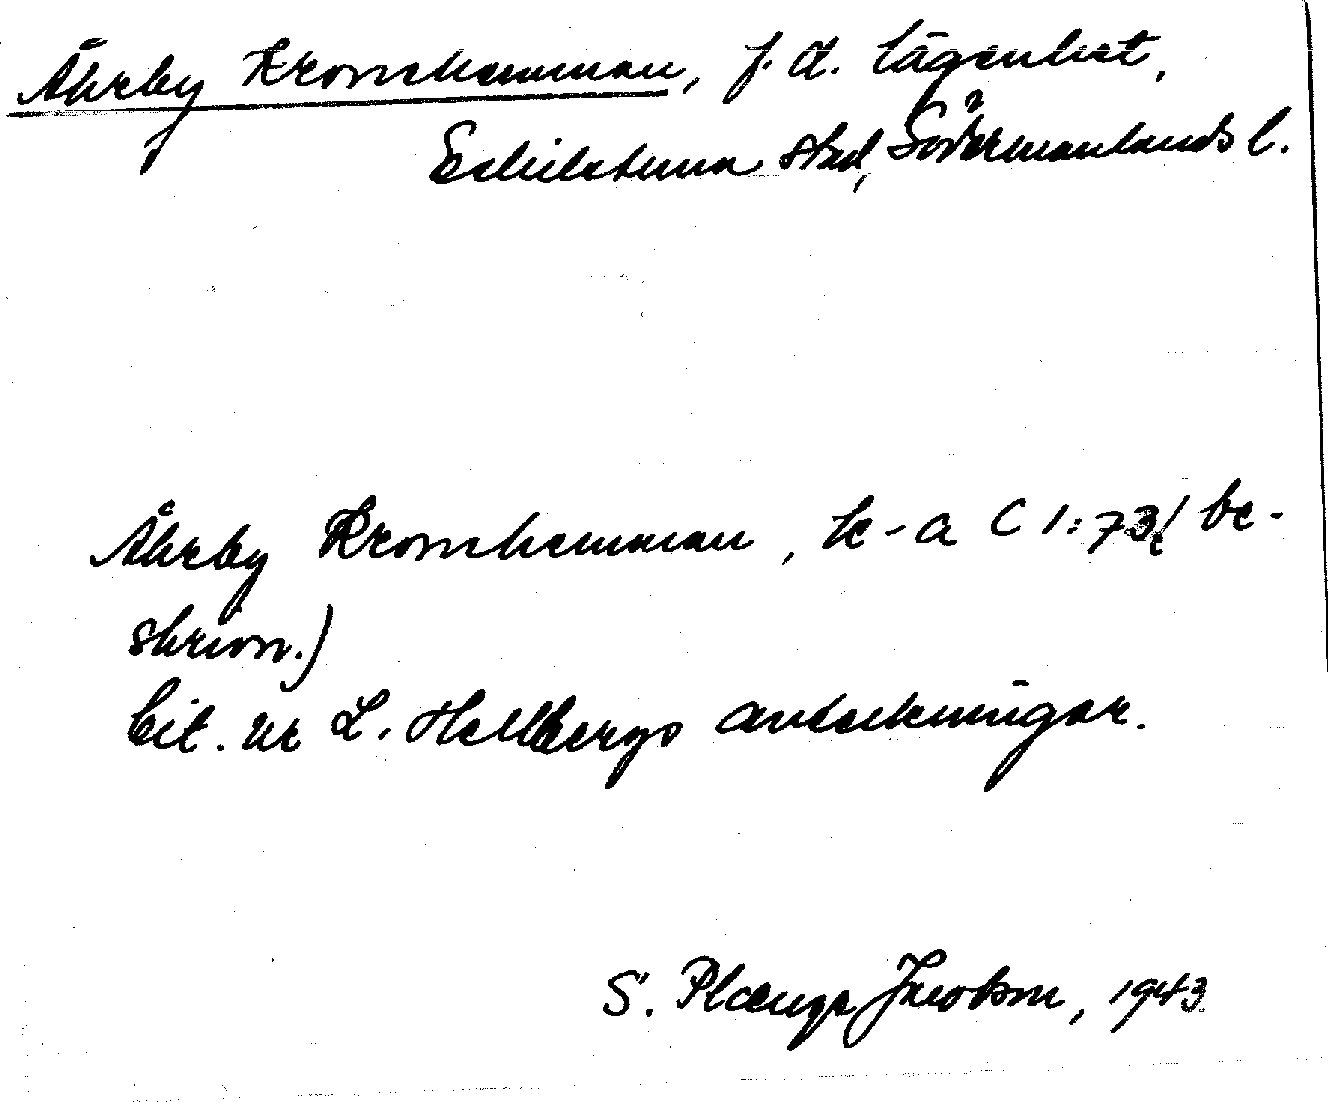 Åhrby Kronohemman, f. d. lägenhet,
Eskilstuna stad, Södermanlands l.
Åhrby Kronohemman, k-a C 1:73 (be-
skrivn.)
Cit. ur L. Hellbergs anteckningar.
S. Jacobson, 1943